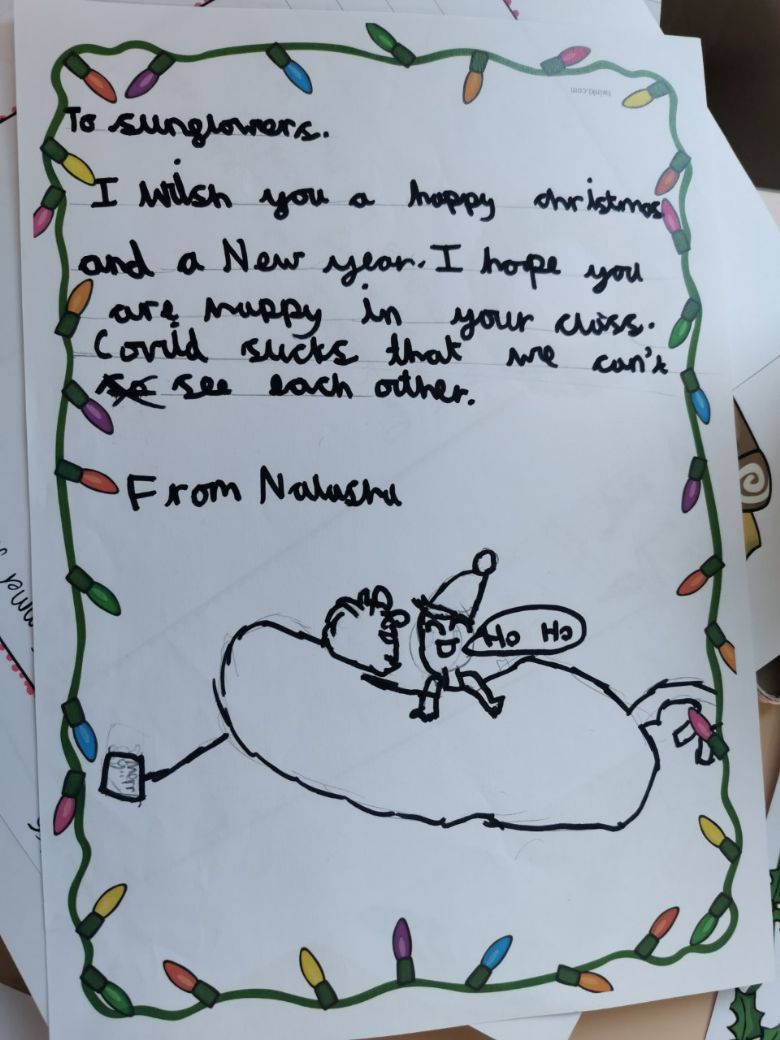 To sunglowers.
I wish you a happy christmas
and a New year. I hope you
are happy in your class.
Covid sucks that we can't
see each other.
From Natasha
Ho Ho
twinkl.com